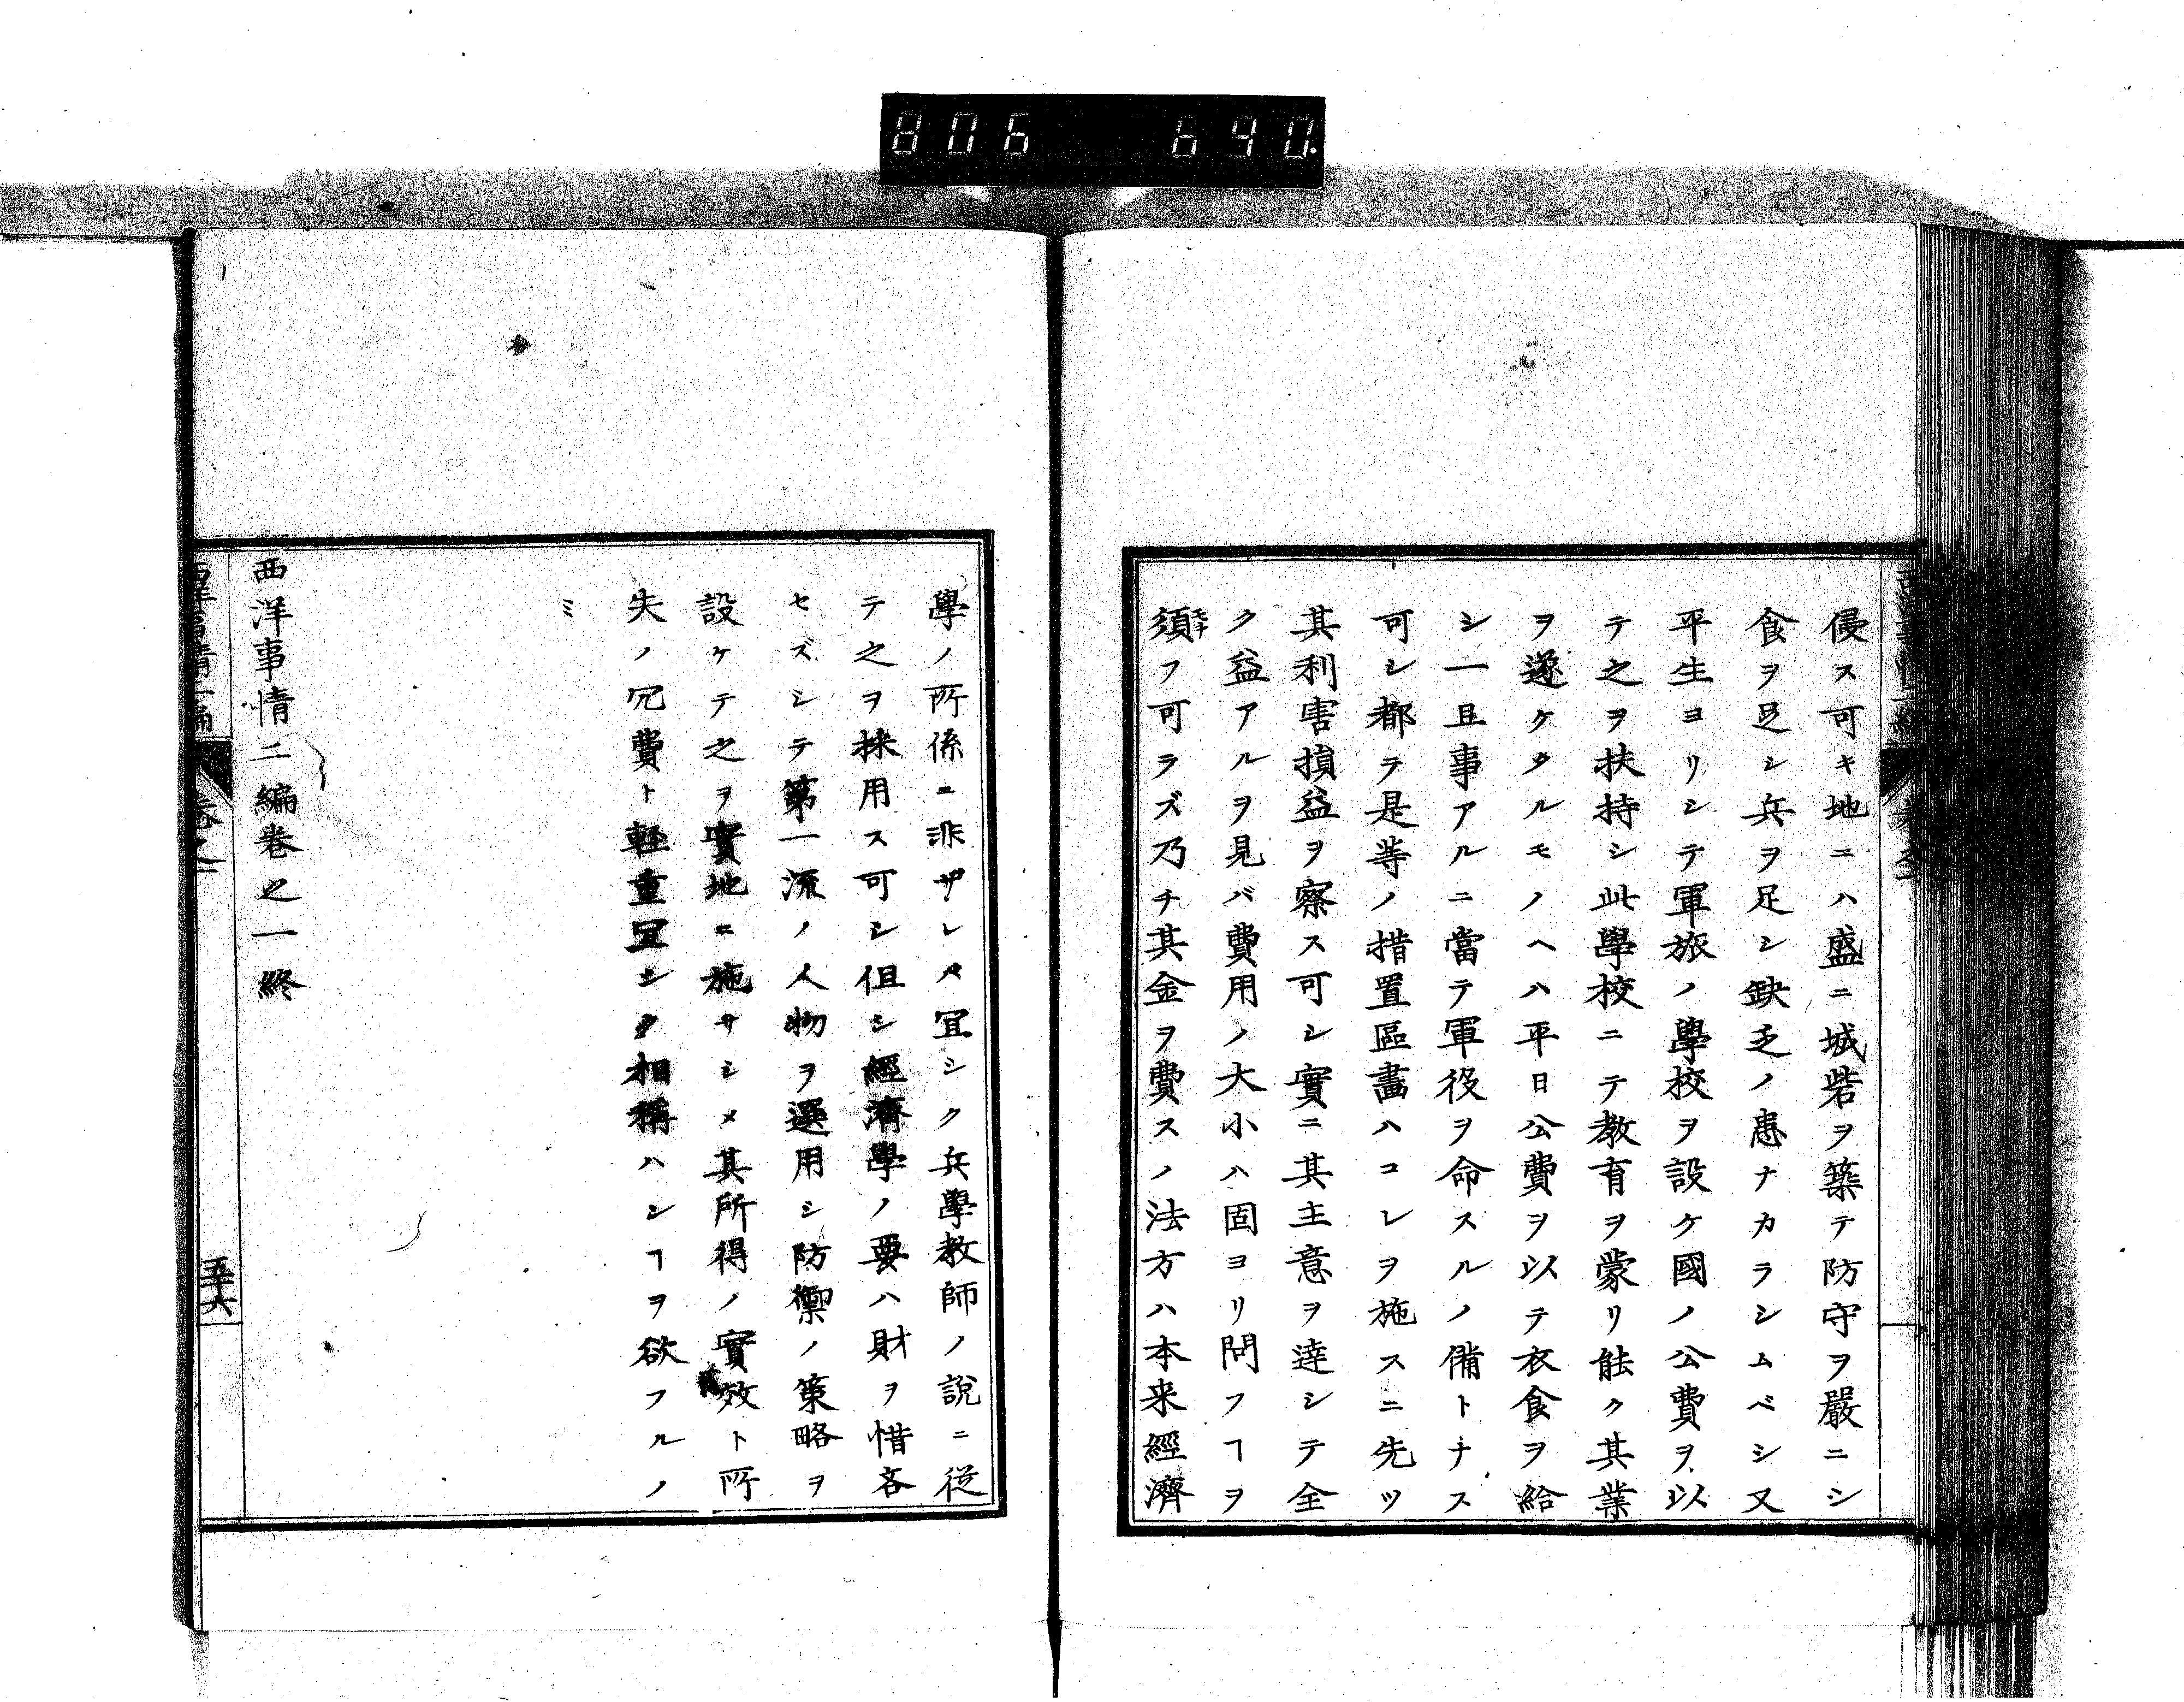 806 640.
侵ス可キ地ニハ盛ニ城砦ヲ築テ防守ヲ嚴ニシ
食ヲ足シ兵ヲ足シ缺乏ノ患ナカラシムベシ又
平生ヨリシテ軍旅ノ學校ヲ設ケ國ノ公費ヲ以
テ之ヲ扶持シ此學校ニテ教育ヲ蒙リ能ク其業
ヲ遂ケタルモノヘハ平日公費ヲ以テ衣食ヲ給
シ一旦事アルニ當テ軍役ヲ命スルノ備トナス
可シ都テ是等ノ措置區畫ハコレヲ施スニ先ツ
其利害損益ヲ察ス可シ實ニ其主意ヲ達シテ全
ク益アルヲ見バ費用ノ大小ハ固ヨリ問フヿヲ
須フ可ラズ乃チ其金ヲ費スノ法方ハ本来經濟
學ノ所係ニ非ザレメ冝シク兵學教師ノ說ニ從
テ之ヲ採用ス可シ但シ經濟學ノ要ハ財ヲ惜吝
セズシテ第一流ノ人物ヲ選用シ防禦ノ策略ヲ
設ケテ之ヲ實地ニ施サシメ其所得ノ實效ト所
失ノ冗費ト軽重冝シク相稱ハシヿヲ欲フルノ
ミ
西洋事情二編卷之一終
西洋事情二編 卷之一 五十六